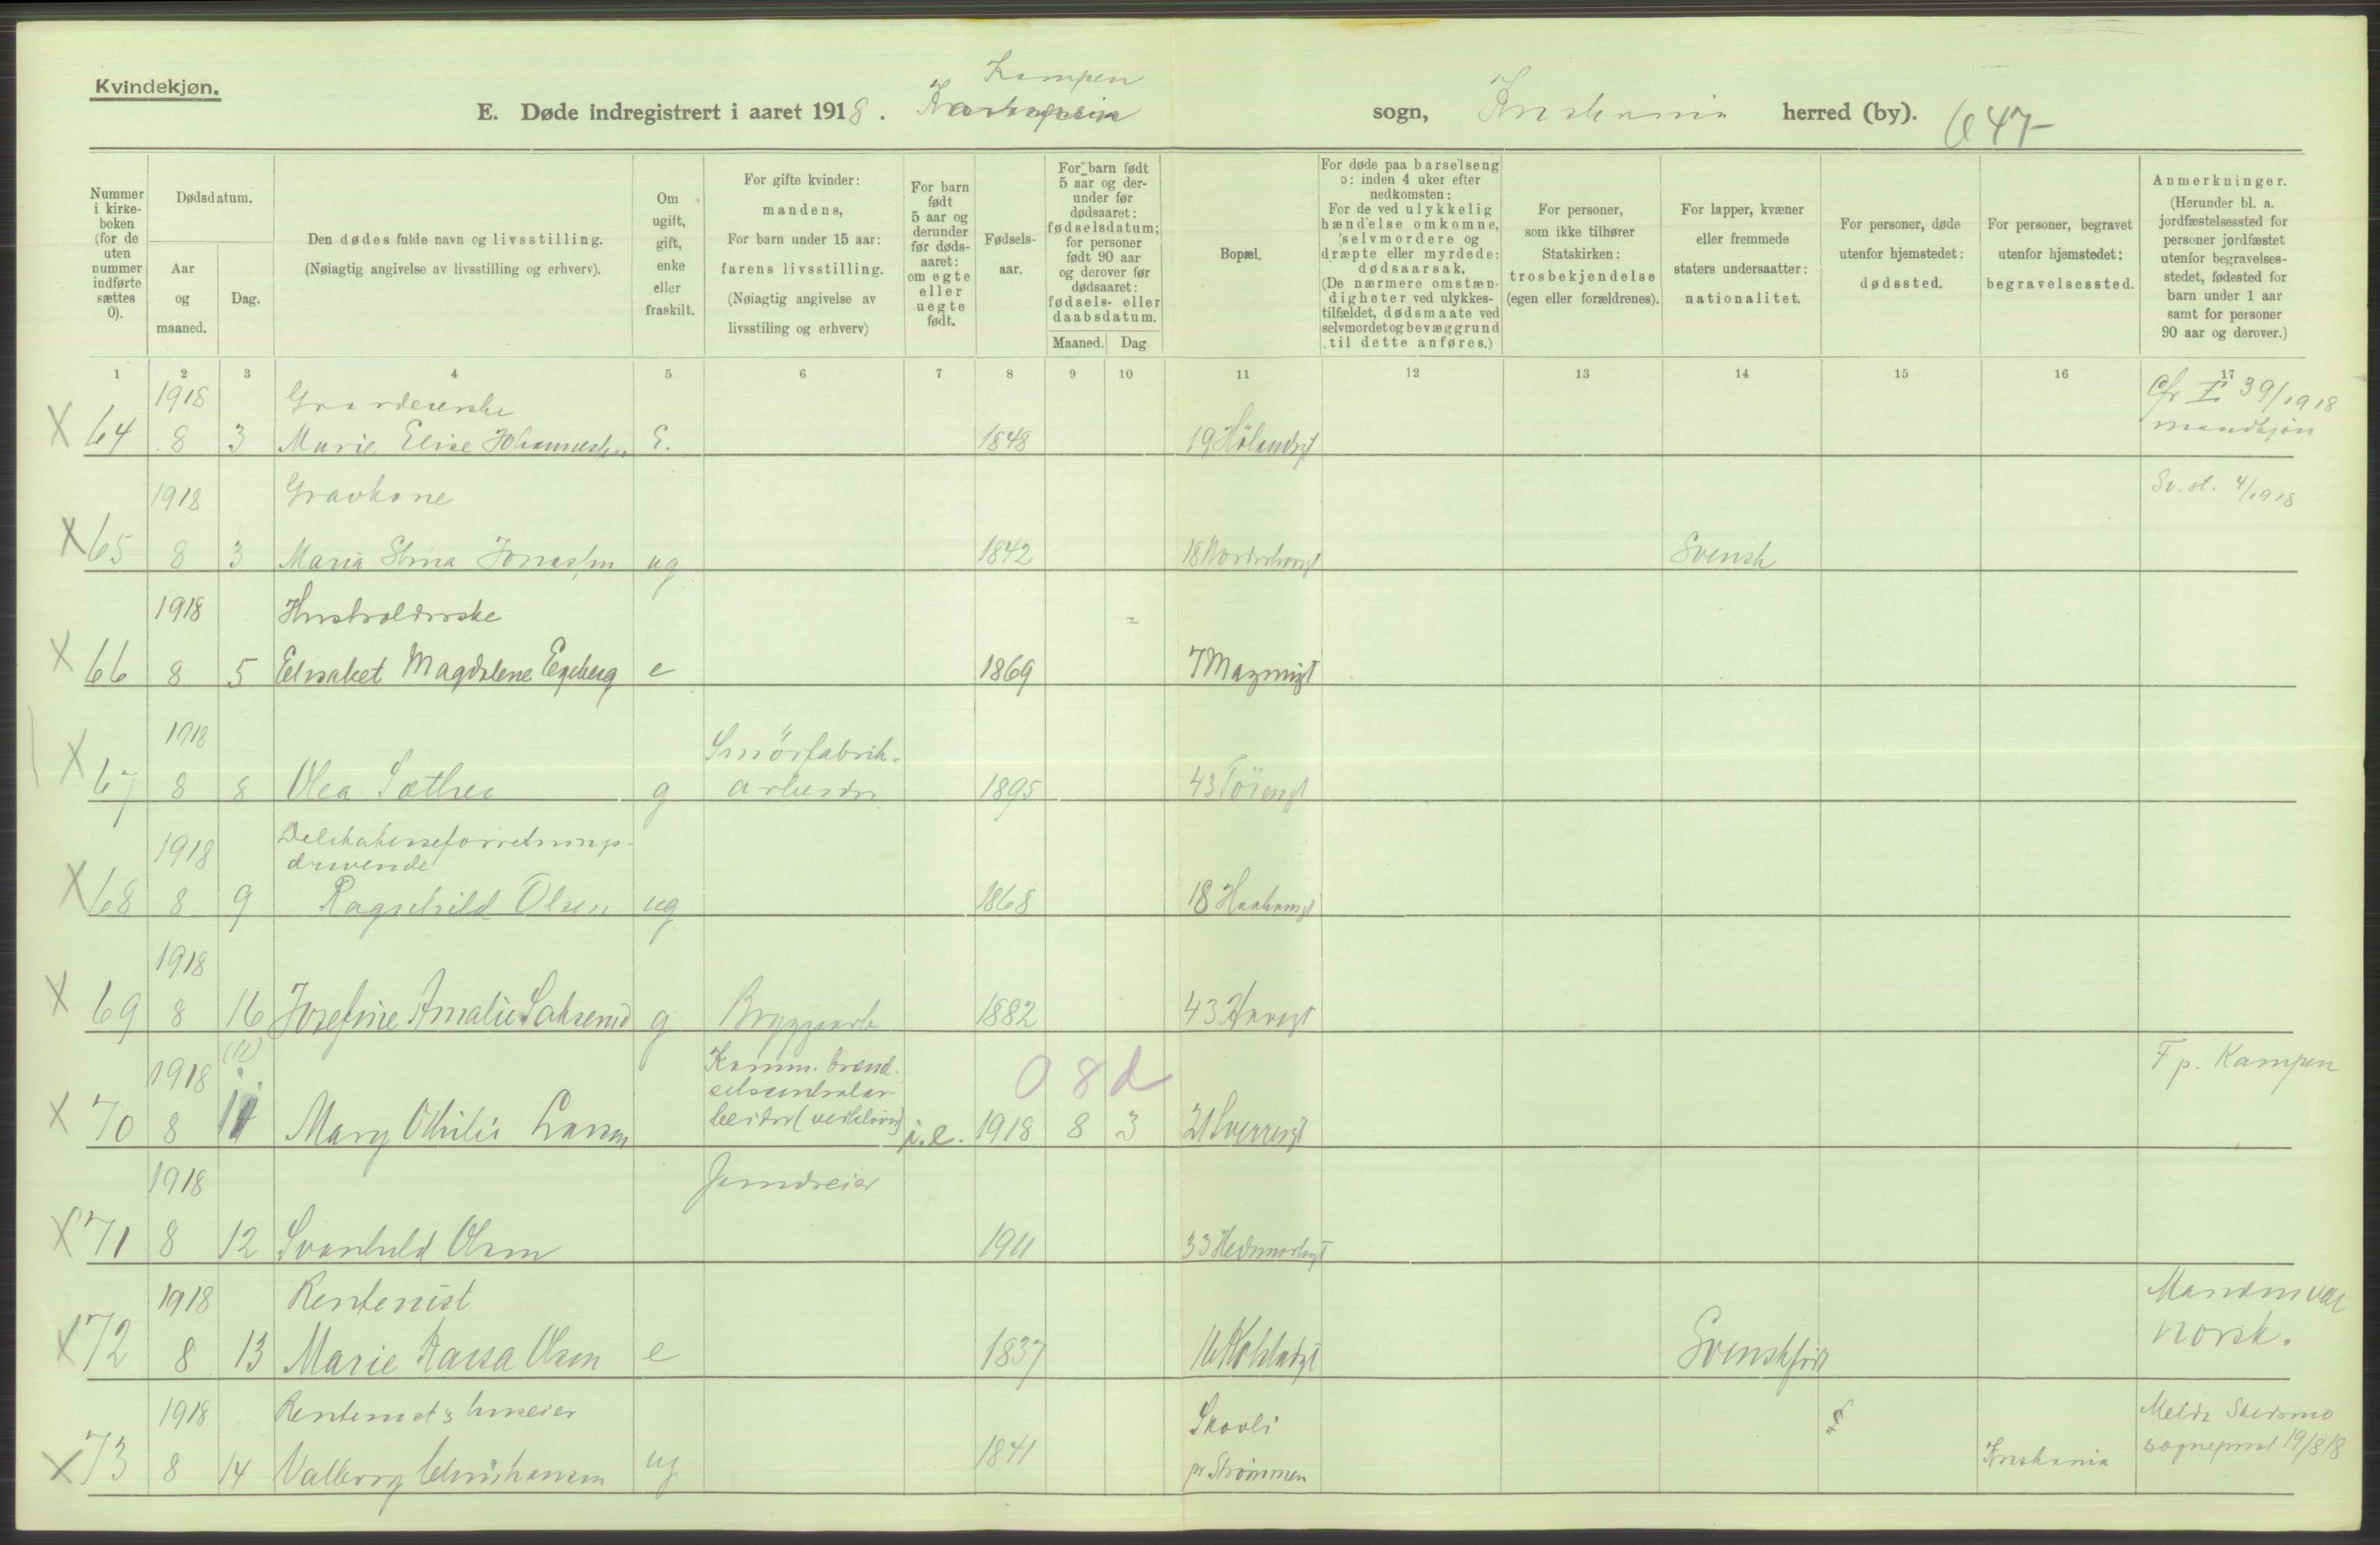 Kvindekjøn.
Kampen
E. Døde indregistrert i aaret 1918. sogn, Kristiania herred (by). 647
Nummer i kirkeboken (for de uten nummer indførte sættes 0).
Dødsdatum.
Aar og maaned.
Dag.
Den dødes fulde navn og livsstilling.
(Nøiagtig angivelse av livsstilling og erhverv).
Om ugift, gift, enke eller fraskilt.
For gifte kvinder: mandens,
For barn under 15 aar: farens livsstilling.
(Nøiagtig angivelse av livsstiling og erhverv)
For barn født 5 aar og derunder før dødsaaret: om egte eller uegte født.
Fødselsaar.
For barn født 5 aar og derunder før dødsaaret: fødselsdatum; for personer født 90 aar og derover før dødsaaret: fødsels- eller daabsdatum.
Maaned. Dag
Bopæl.
For døde paa barselseng ɔ: inden 4 uker efter nedkomsten:
For de ved ulykkelig hændelse omkomne, selvmordere og dræpte eller myrdede: dødsaarsak.
(De nærmere omstændigheter ved ulykkestilfældet, dødsmaate ved selvmordet og bevæggrund til dette anføres.)
For personer, som ikke tilhører Statskirken: trosbekjendelse (egen eller forældrenes).
For lapper, kvæner eller fremmede staters undersaatter: nationalitet.
For personer, døde utenfor hjemstedet: dødssted.
For personer, begravet utenfor hjemstedet: begravelsessted.
Anmerkninger.
(Herunder bl. a. jordfæstelsessted for personer jordfæstet utenfor begravelsesstedet, fødested for barn under 1 aar samt for personer 90 aar og derover.)
1 2 3 4 5 6 7 8 9 10 11 12 13 14 15 16 17
1918 Cfr I 39/1918
mandkjön
X 64 8 3 Marie Elise Johannessen E. 1848 19 Hölandsgt
1918 Gravkone Sv. st. 4/1918
X 65 8 3 Maria Stina Jonassen ug 1842 18 Norderhovsgt Svensk
1918 Husholderske
X 66 8 5 Elisabet Magdalene Egeberg e 1869 7 Magnusgt
1918 Smörfabrik-
X 67 8 8 Olea Sæther g arbeider 1895 43 Töiengt
1918 Delikatesseforretnings-
drivende
X 68 8 9 Ragnhild Olsen ug 1868 18 Haakonsgt
1918
X 69 8 16 Josefine Amalie g Bryggearb 1882 43
1918 (11) Komm. brend-
selscentralar- 0 8 d F p. Kampen
X 70 8 11 Mary Othilie Larsen beider i.e. 1918 8 3 21 Sverresgt
1918
X 71 8 12 Svanhild Olsen 1911 33 Hedemarksgt
1918 Rentenist Manden var
X 72 8 13 Marie Kaisa Olsen e 1837 16 Svenskfödt norsk.
1918 Rentenist & huseier Skovli Meldt Skedsmo
X 73 8 14 Valborg Christiansen ug 1841 pr Strömmen Kristiania sogneprest 19/8 18